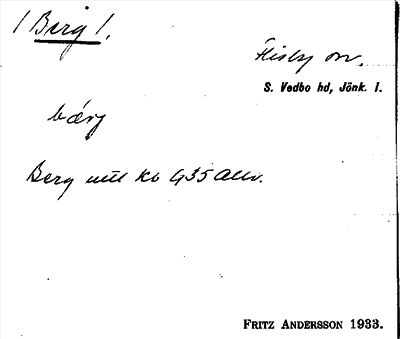 / Berg /.
Flisby sn.
S. Vedbo hd, Jönk. l.
bærj
Berg utt Kb G35 Allm.
FRITZ ANDERSSON 1933.